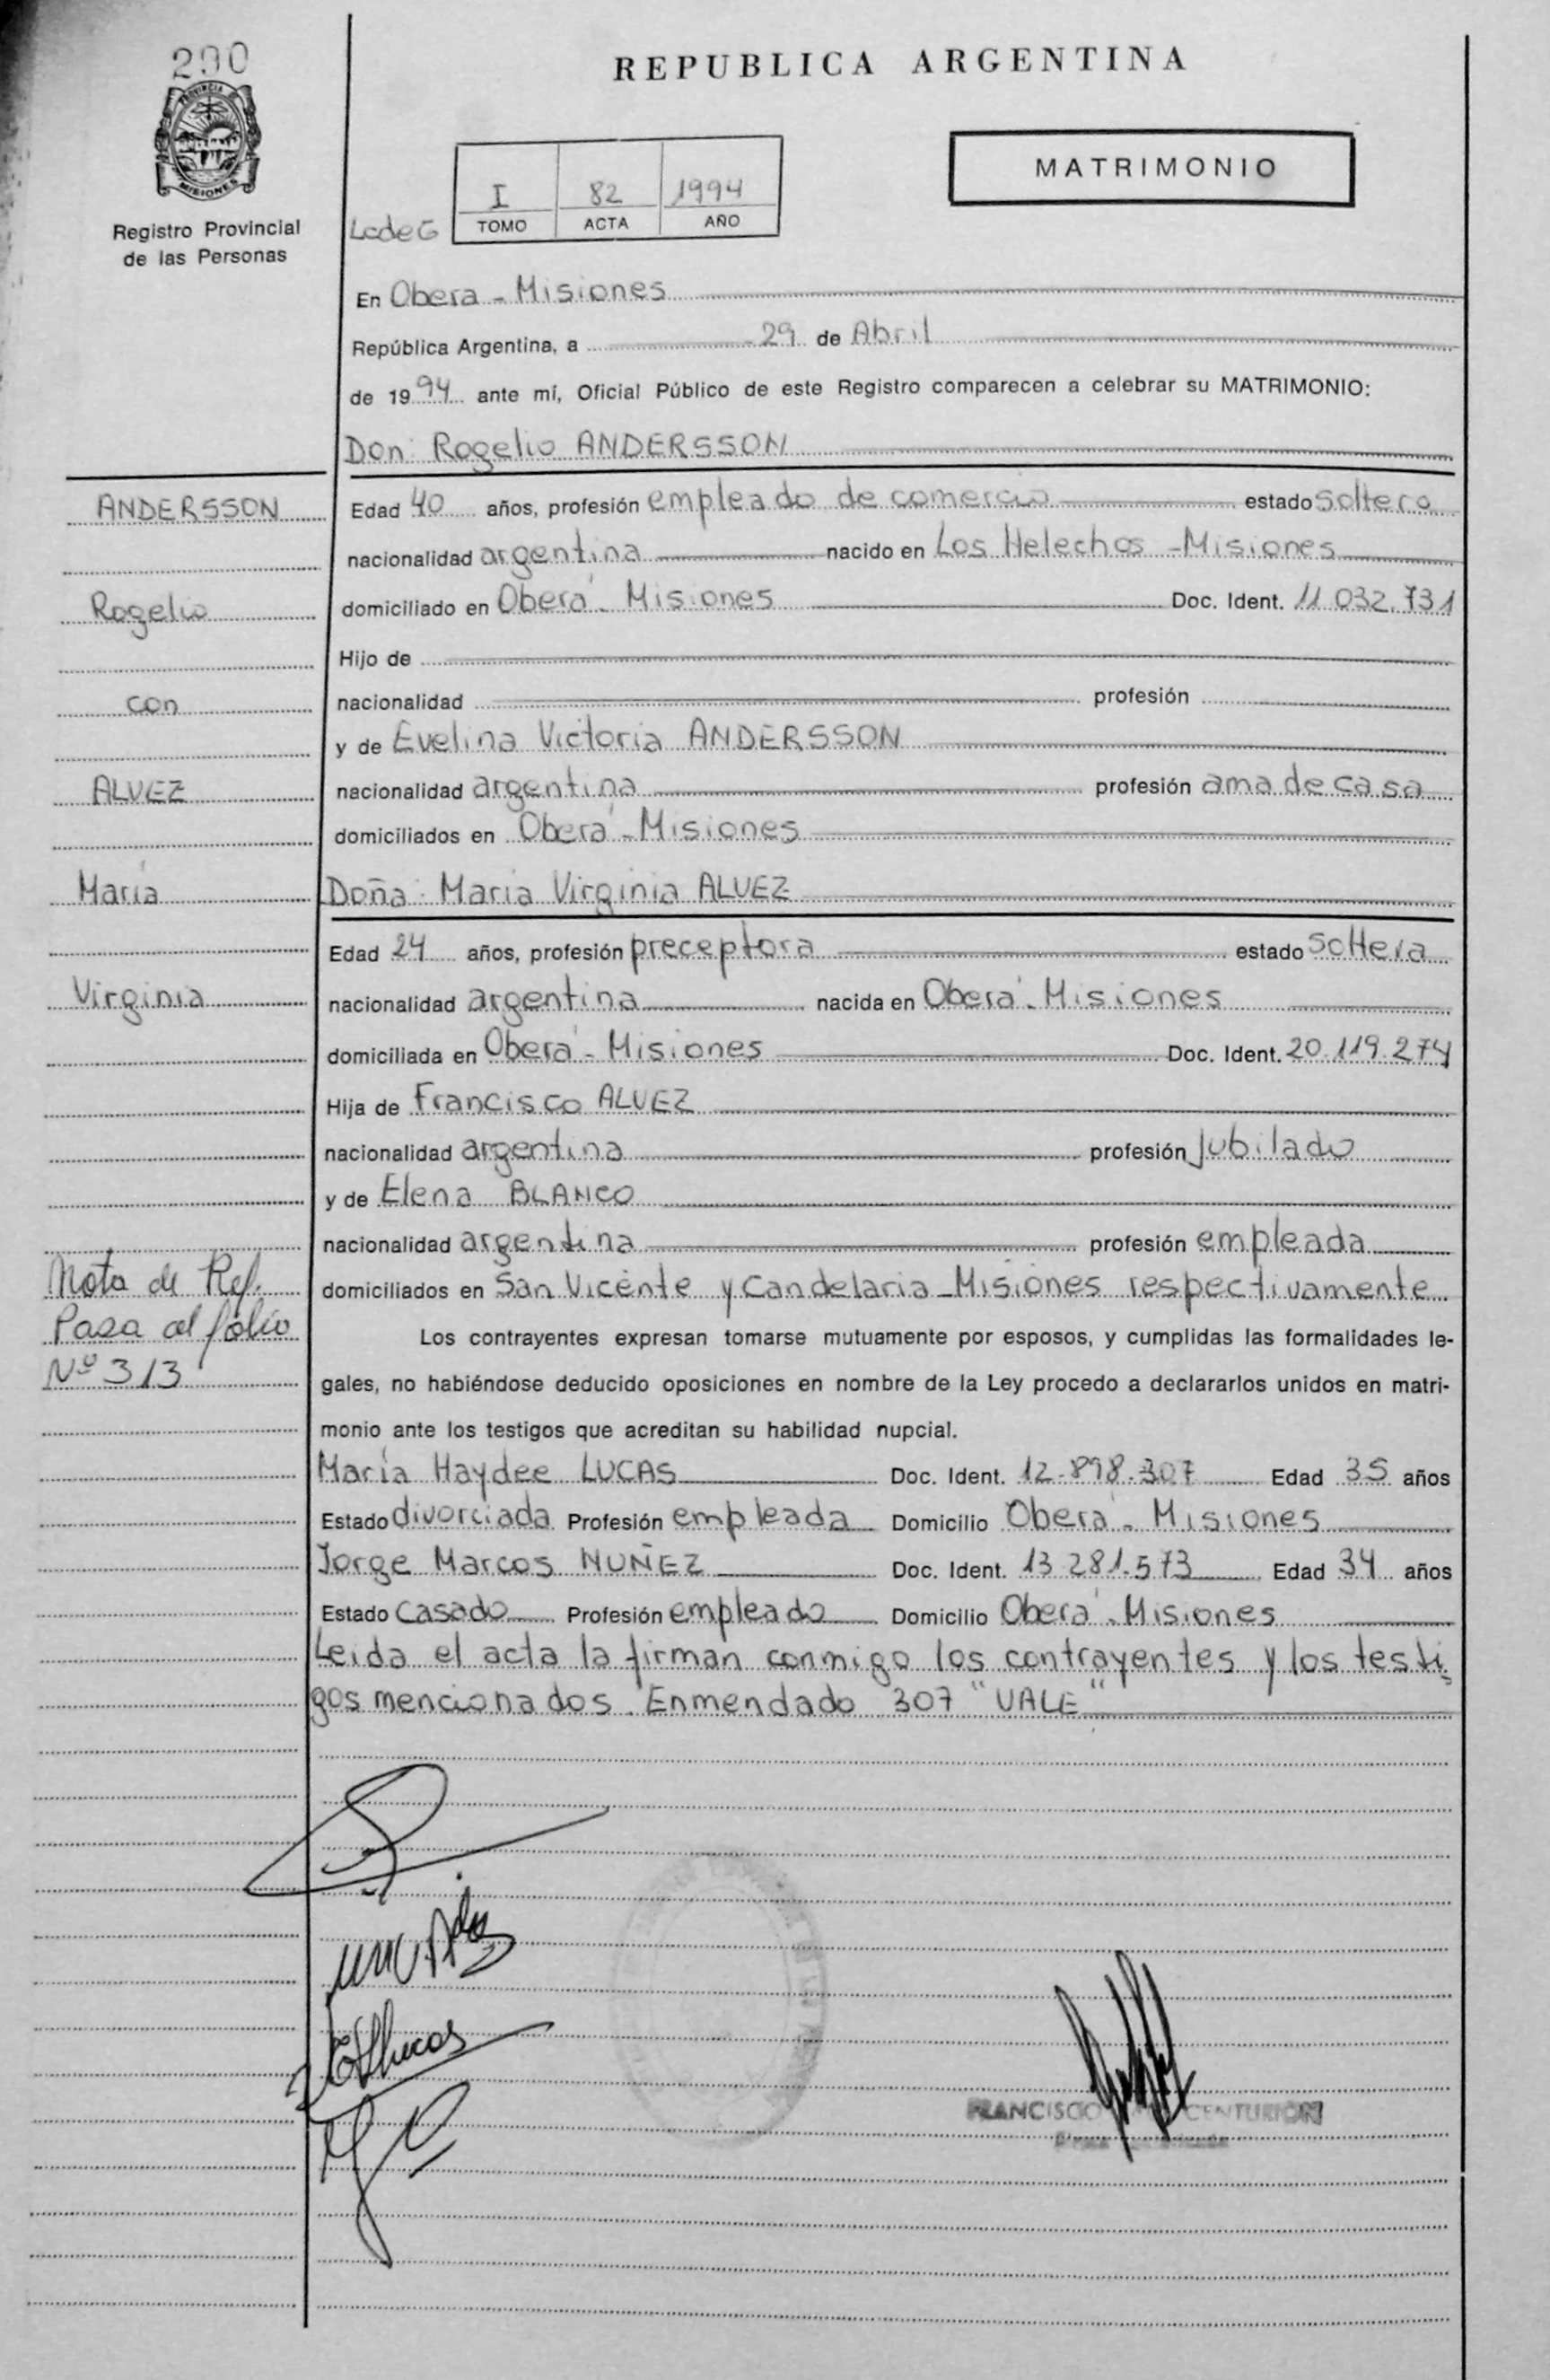 290
REPUBLICA ARGENTINA
PROVINCIA
MISIONES
Registro Provincial
de las Personas
LcdeG
I 82 1994
TOMO ACTA AÑO
MATRIMONIO
En Obera - Misiones
República Argentina, a 29 de Abril
de 1994 ante mí, Oficial Público de este Registro comparecen a celebrar su MATRIMONIO:
Don: Rogelio ANDERSSON
ANDERSSON
Rogelio
con
ALVEZ
María
Virginia
Nota de Ref.
Pasa al folio
Nº 313
Edad 40 años, profesión empleado de comercio estado soltero
nacionalidad argentina nacido en Los Helechos - Misiones
domiciliado en Oberá - Misiones Doc. Ident. 11.032.731
Hijo de
nacionalidad profesión
y de Evelina Victoria ANDERSSON
nacionalidad argentina profesión ama de casa
domiciliados en Oberá - Misiones
Doña: Maria Virginia ALVEZ
Edad 24 años, profesión preceptora estado soltera
nacionalidad argentina nacida en Oberá - Misiones
domiciliada en Oberá - Misiones Doc. Ident. 20.119.274
Hija de Francisco ALVEZ
nacionalidad argentina profesión Jubilado
y de Elena BLANCO
nacionalidad argentina profesión empleada
domiciliados en San Vicente y Candelaria - Misiones respectivamente
Los contrayentes expresan tomarse mutuamente por esposos, y cumplidas las formalidades le-
gales, no habiéndose deducido oposiciones en nombre de la Ley procedo a declararlos unidos en matri-
monio ante los testigos que acreditan su habilidad nupcial.
María Haydee LUCAS Doc. Ident. 12.898.307 Edad 35 años
Estado divorciada Profesión empleada Domicilio Oberá - Misiones
Jorge Marcos NUÑEZ Doc. Ident. 13.281.573 Edad 34 años
Estado Casado Profesión empleado Domicilio Oberá - Misiones
Leida el acta la firman conmigo los contrayentes y los testi
gos mencionados. Enmendado 307 "VALE"
FRANCISCO CENTURION